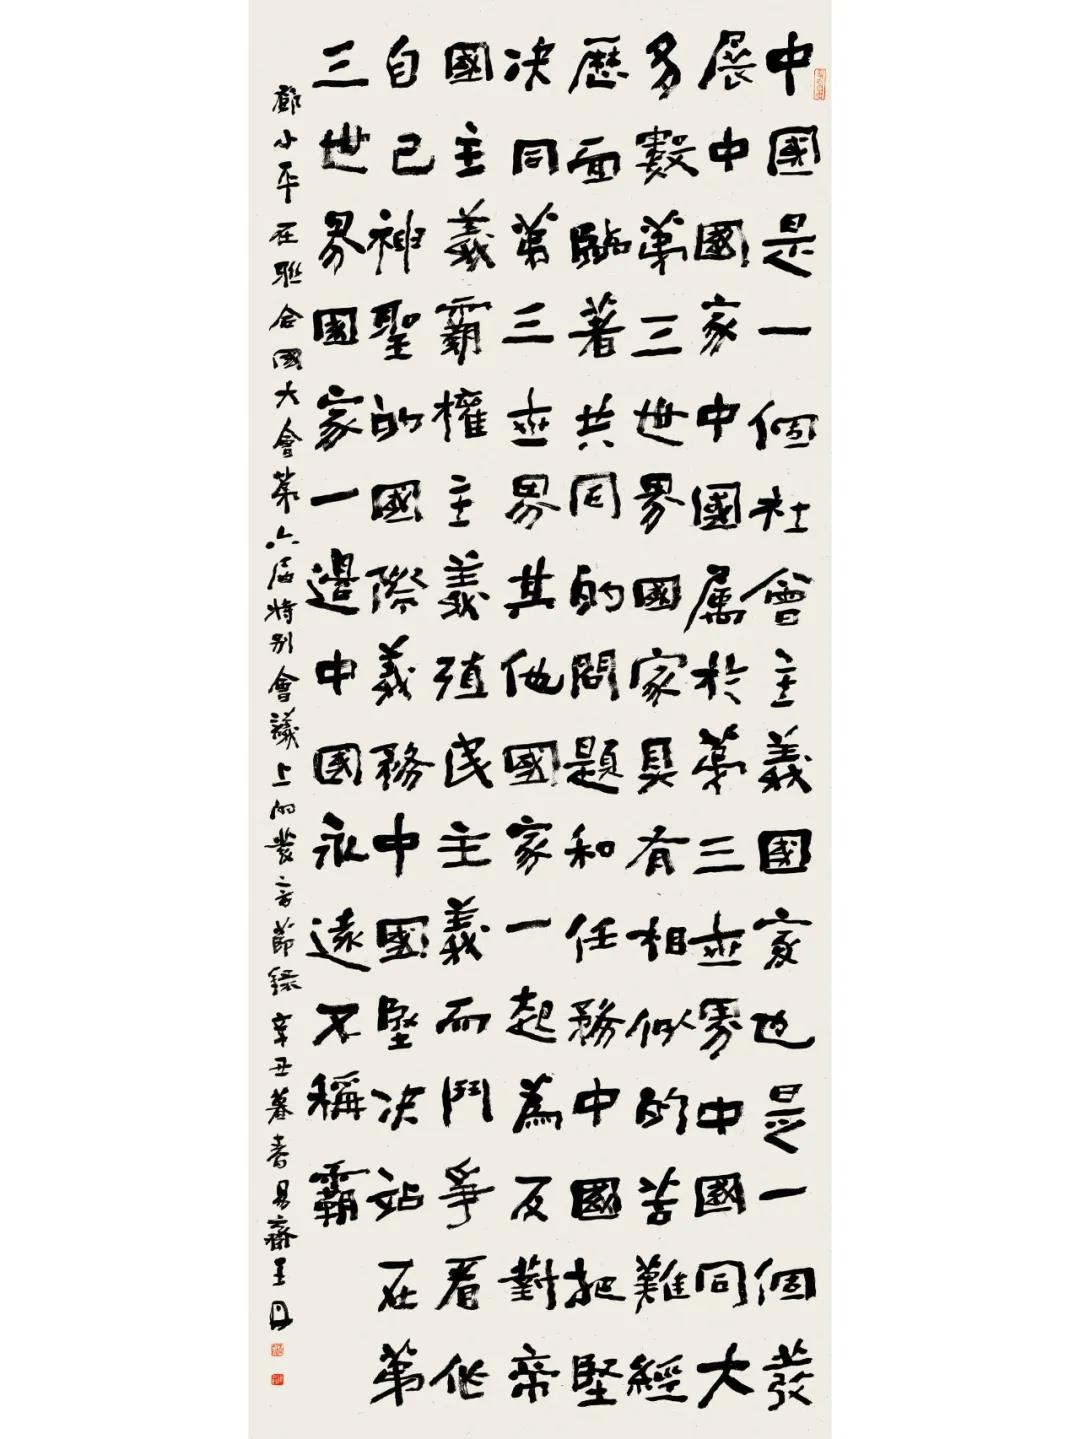 中國是一個社會主義國家也是一個發
展中國家中國属於苐三世界中國同大
多數苐三世界國家具有相似的苦難經
歷面臨著共同的問題和任務中國把堅
决同苐三世界其他國家一起為反對帝
國主義霸權主義殖民主義而鬥爭看作
自己神聖的國際義務中國堅决站在苐
三世界國家一邊中國永遠不稱霸
鄧小平在聯合國大會苐六屆特别會議上的發言節録辛丑暮春易齋王丹